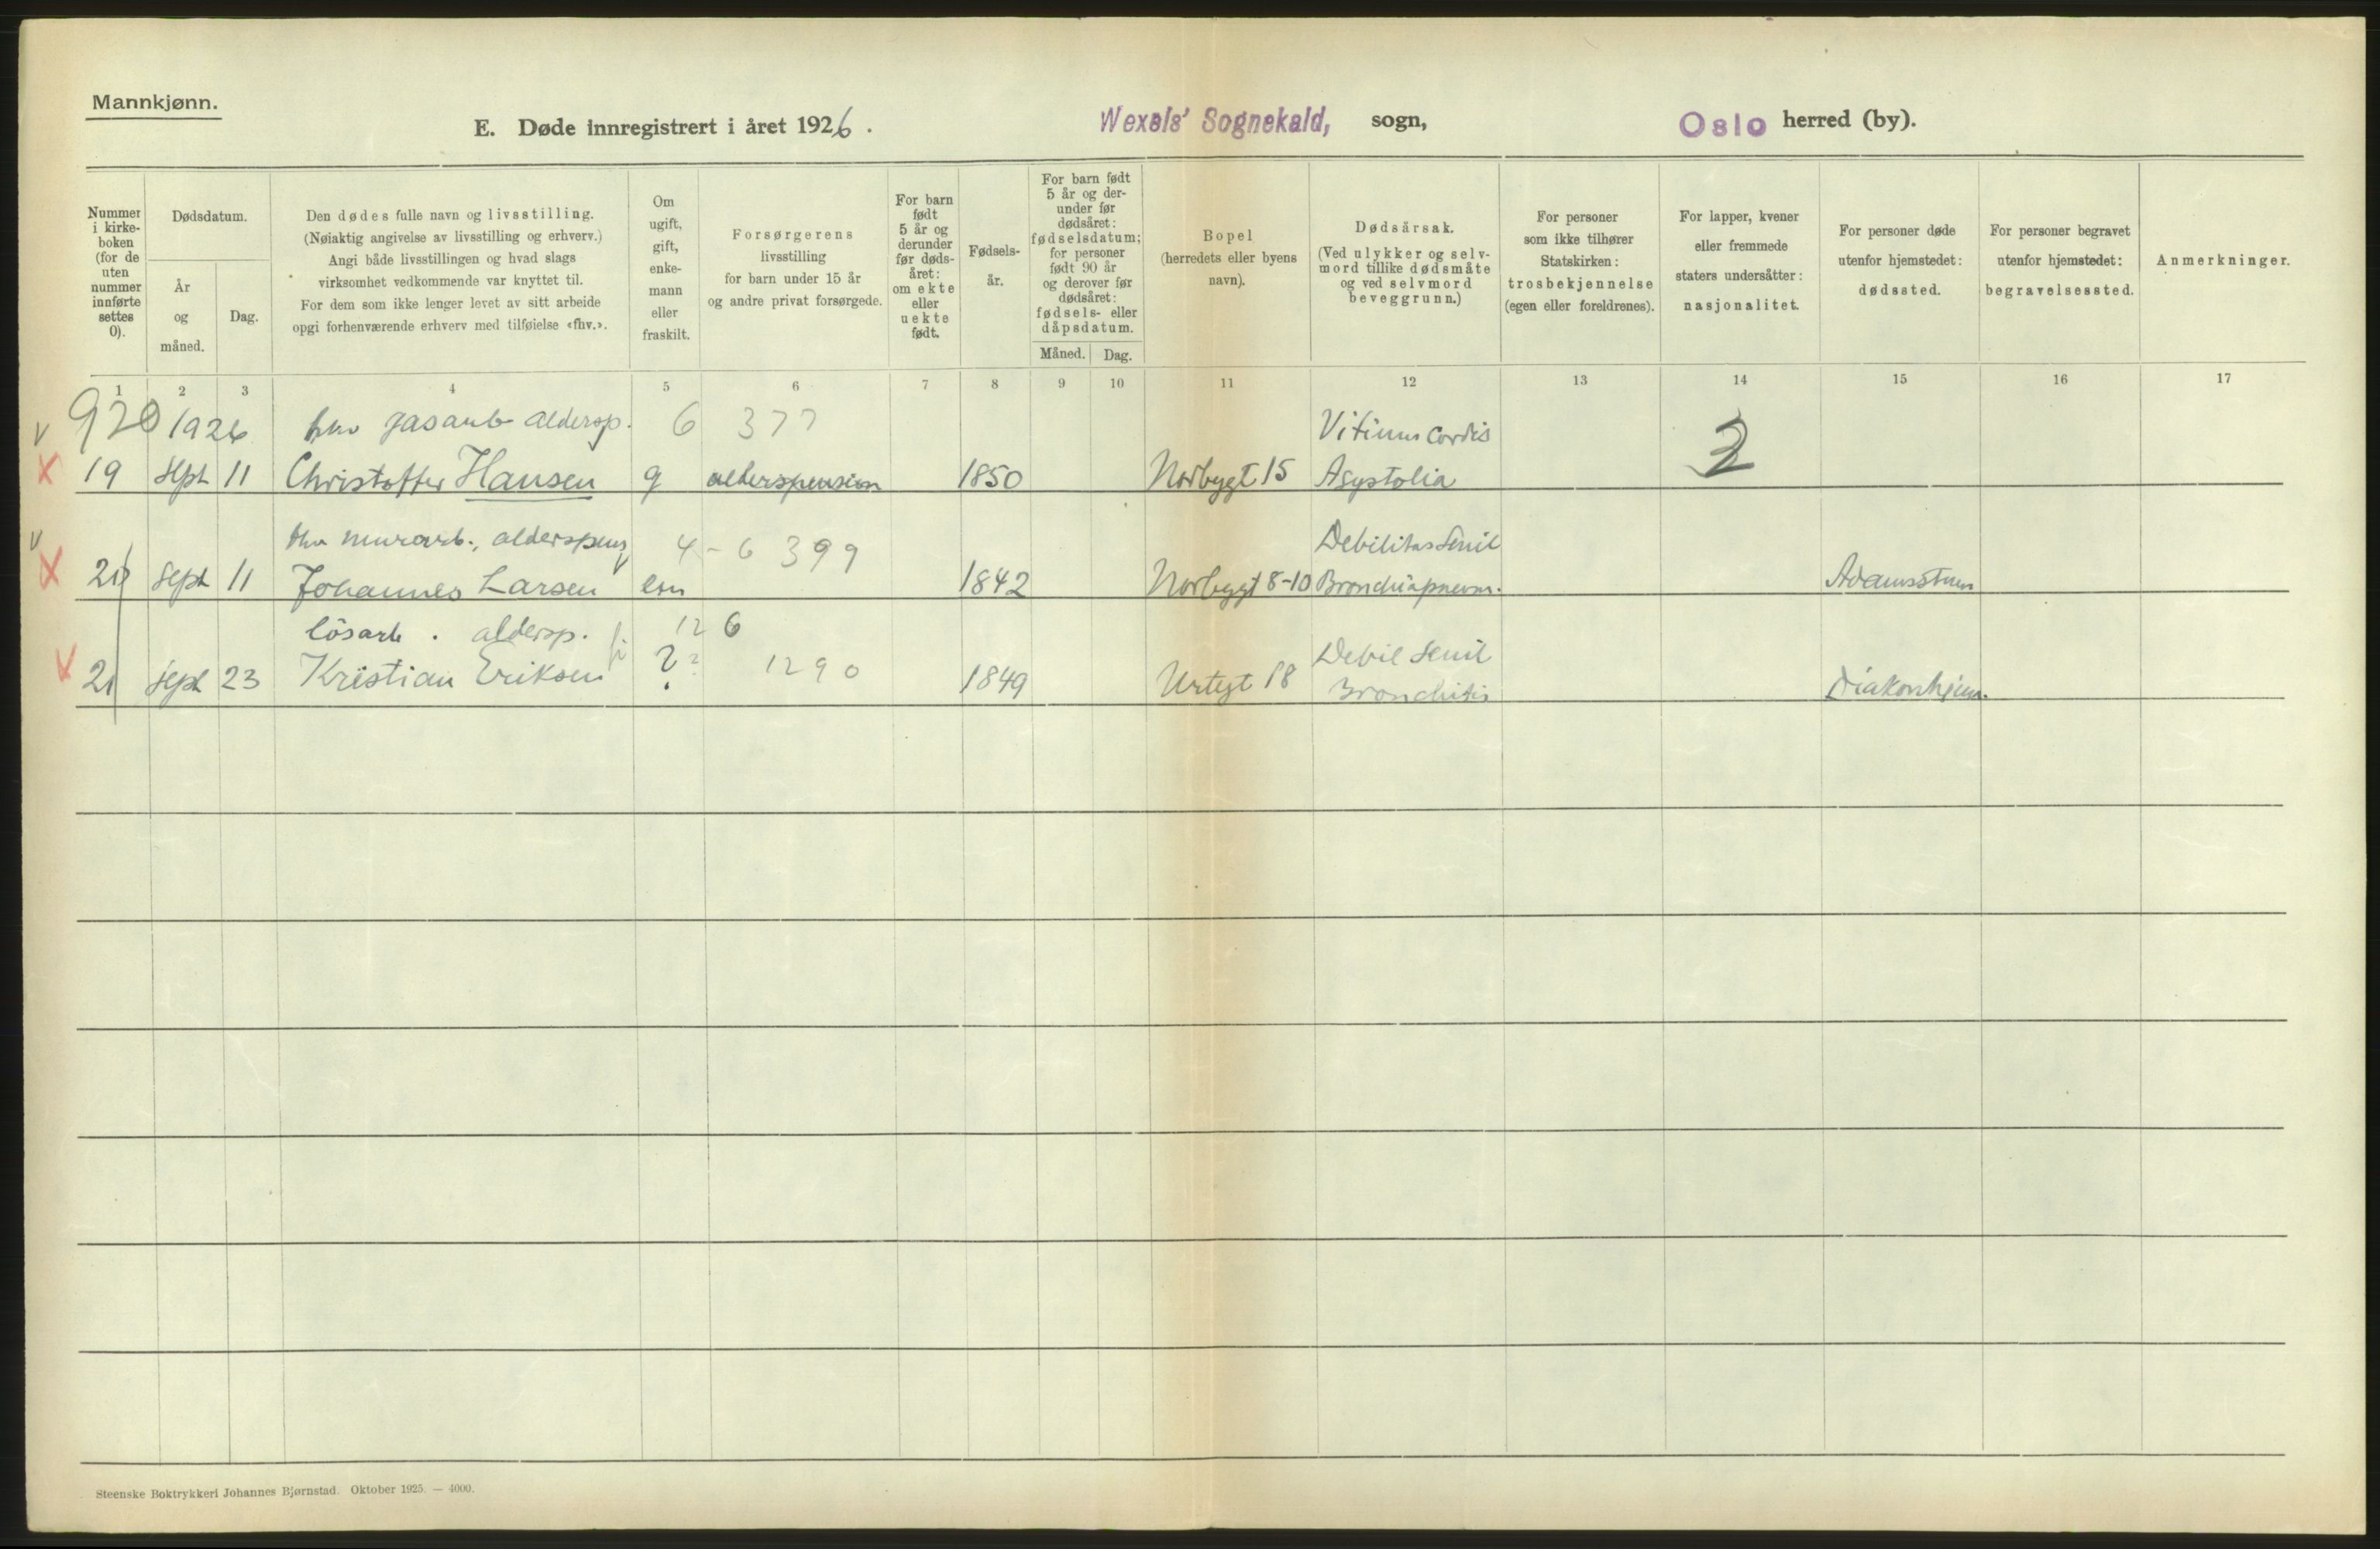 Mannkjønn.
E. Døde innregistrert i året 1926.
Wexels' Sognekald, sogn,
Oslo herred (by).
Nummer
i kirke-
boken
(for de
uten
nummer
innførte
settes
0).
Dødsdatum.
År
og
måned.
Dag.
Den dødes fulle navn og livsstilling.
(Nøiaktig angivelse av livsstilling og erhverv.)
Angi både livsstillingen og hvad slags
virksomhet vedkommende var knyttet til.
For dem som ikke lenger levet av sitt arbeide
opgi forhenværende erhverv med tilføielse «fhv.».
Om
ugift,
gift,
enke-
mann
eller
fraskilt.
Forsørgerens
livsstilling
for barn under 15 år
og andre privat forsørgede.
For barn
født
5 år og
derunder
før døds-
året:
om ekte
eller
uekte
født.
Fødsels-
år.
For barn født
5 år og der-
under før
dødsåret:
fødselsdatum;
for personer
født 90 år
og derover før
dødsåret:
fødsels- eller
dåpsdatum.
Måned. Dag.
Bopel
(herredets eller byens
navn).
Dødsårsak.
(Ved ulykker og selv-
mord tillike dødsmåte
og ved selvmord
beveggrunn.)
For personer
som ikke tilhører
Statskirken:
trosbekjennelse
(egen eller foreldrenes).
For lapper, kvener
eller fremmede
staters undersåtter:
nasjonalitet.
For personer døde
utenfor hjemstedet:
dødssted.
For personer begravet
utenfor hjemstedet:
begravelsessted.
Anmerkninger.
1 2 3 4 5 6 7 8 9 10 11 12 13 14 15 16 17
920 1926 fhv gasarb aldersp. 6 377 Vitium Cordis 2
19 Sept 11 Christoffer Hansen g alderspension 1850 Norbygt 15 Asystolia
fhv murarb., alderspens 4-6 399 Debilitas Senil
20 Sept 11 Johannes Larsen em 1842 Norbygt 8-10 Bronchiapneum. Adamsstuen
lösarb. aldersp. 12 6 Debil Senil
21 Sept 23 Kristian Eriksen ? ? 1290 1849 Urtegt 18 Bronchitis Diakonhjem.
Steenske Boktrykkeri Johannes Bjørnstad. Oktober 1925. — 4000.